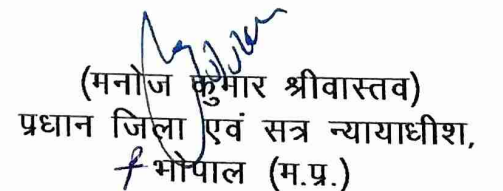 (मनोज कुमार श्रीवास्तव)
प्रधान जिला एवं सत्र न्यायाधीश,
भोपाल (म.प्र.)